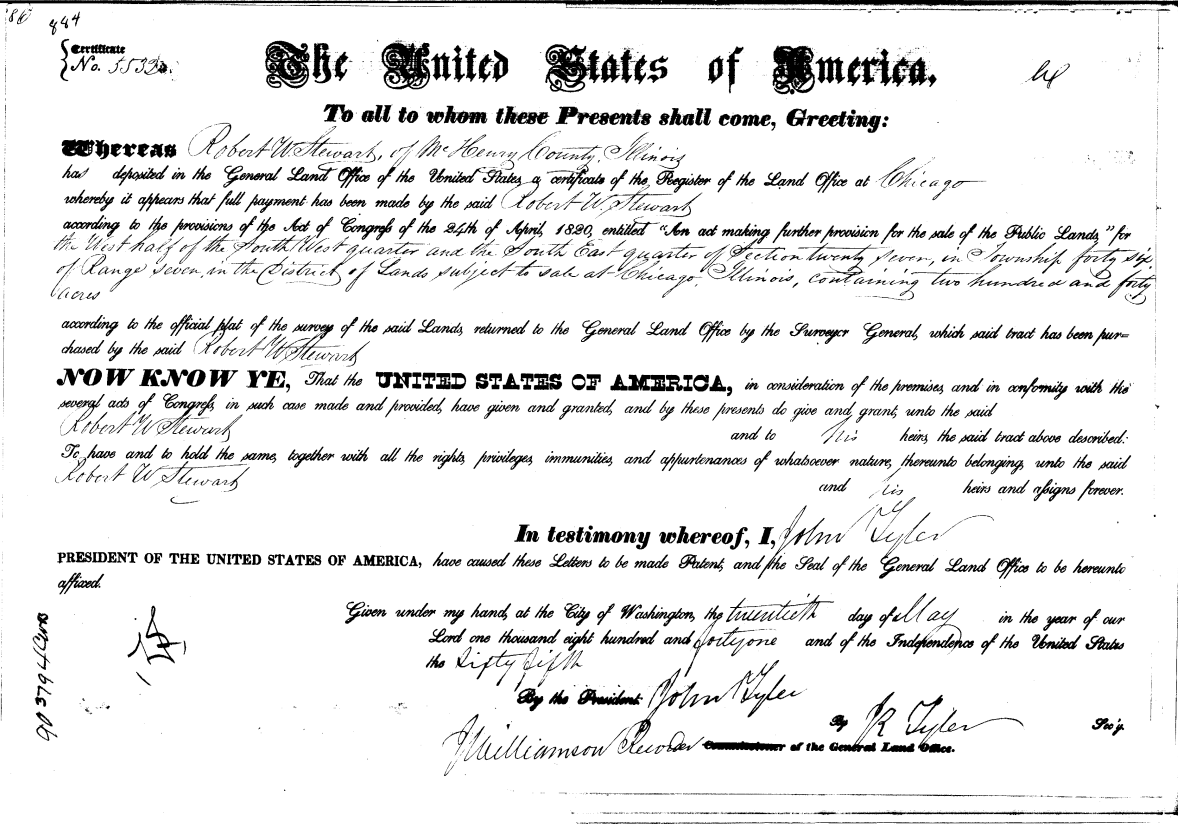 884
Certificate
No. 5533
The United States of America.
To all to whom these Presents shall come, Greeting:
Whereas Robert W Stewart, of McHenry County, Illinois
has deposited in the General Land Office of the United States, a certificate of the Register of the Land Office at Chicago
whereby it appears that full payment has been made by the said Robert W Stewart
according to the provisions of the Act of Congress of the 24th of April, 1820, entitled "An act making further provision for the sale of the Public Lands," for
the West half of the South West quarter and the South East quarter of Section twenty seven, in Township forty six
of Range seven, in the District of Lands subject to sale at Chicago, Illinois, containing two hundred and forty
acres
according to the official plat of the survey of the said Lands, returned to the General Land Office by the Surveyor General, which said tract has been pur-
chased by the said Robert W Stewart
NOW KNOW YE, That the UNITED STATES OF AMERICA, in consideration of the premises, and in conformity with the
several acts of Congress, in such case made and provided, have given and granted, and by these presents do give and grant, unto the said
Robert W Stewart
and to his heirs, the said tract above described:
To have and to hold the same, together with all the rights, privileges, immunities, and appurtenances of whatsoever nature, thereunto belonging, unto the said
Robert W Stewart
and his heirs and assigns forever.
In testimony whereof, I, John Tyler
PRESIDENT OF THE UNITED STATES OF AMERICA, have caused these Letters to be made Patent, and the Seal of the General Land Office to be hereunto
affixed.
Given under my hand, at the City of Washington, the twentieth day of May in the year of our
Lord one thousand eight hundred and forty one and of the Independence of the United States
the Sixty fifth
By the President: John Tyler
By R Tyler Sec'y.
J Williamson Recorder Commissioner of the General Land Office.